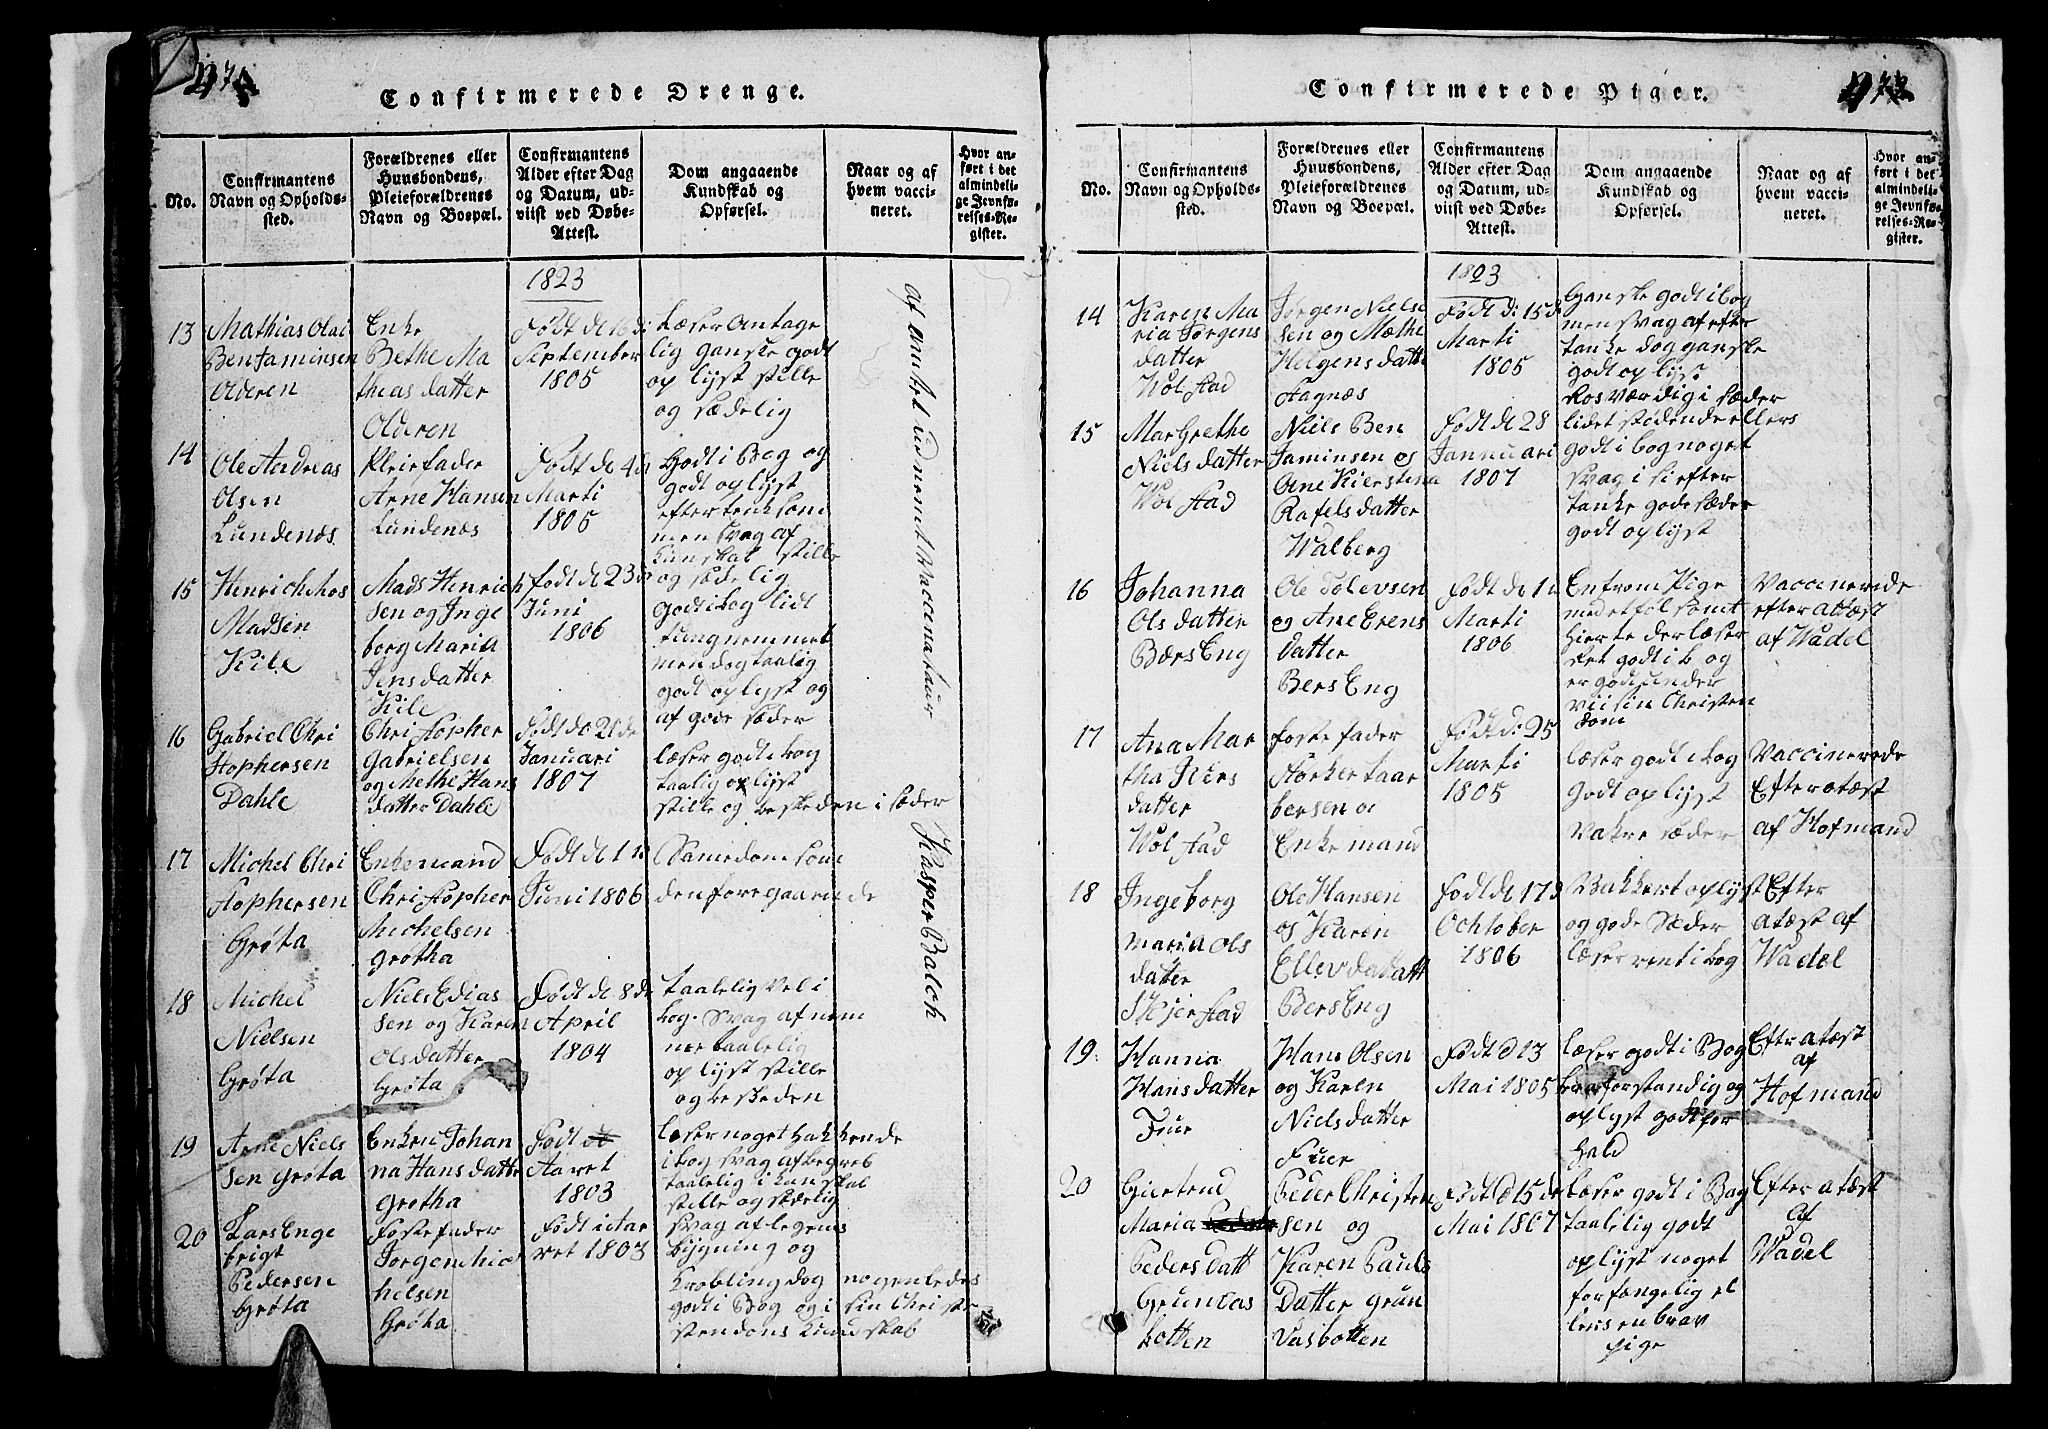 Confirmerede Drenge.
No.
Confirmantens
Navn og Opholds-
sted.
Forældrenes eller
Huusbondens,
Pleieforældrenes
Navn og Boepæl.
Confirmantens
Alder efter Dag
og Datum, ud-
viist ved Døbe-
Attest.
Dom angaaende
Kundskab og
Opførsel.
Naar og af
hvem vacci-
neret.
Hvor an-
ført i det
almindeli-
ge Jevnfø-
relses-Re-
gister.
1823
13
Mathias Olai
Benjaminsen
Olderen
Enke
Bethe Ma
thias datter
Olderen
Født de 16 di
September
1805
Læser Antage
lig ganske godt
op lyst stille
og sædelig
14
Ole Andreas
Olsen
Lundenæs
Pleiefader
Arne Hansen
Lundenæs
Født de 4 de
Marti
1805
Godt i Bog og
godt op lyst
efter tenksom
men Svag af
kunskab stille
og sædelig
15
Henrich Mos
Madsen
Kile
Mads Henrich
sen og Inge
borg Maria
Jensdatter
Kile
født de 23 de
Juni
1806
godt i bog lidt
tung nemmet
men dog taalig
godt op lyst og
af gode sæder
16
Gabriel Chri
stophersen
Dahle
Christopher
Gabrielsen
og Methe Hans
datter Dahle
Født do 21 de
Januari
1807
læser godt i bog
taalig op lyst
stille og beskeden i sæder
17
Michel Chri
stophersen
Grøta
Enkemand
Christopher
Michelsen
grøtha
Født de 1 te
Juni 1806
Samedom som
den foregaaende
18
Michel
Nielsen
Grøta
Niels Edias
sen og Karen
Olsdatter
Grøta
Født de 8 de
April
1804
taalelig vel i
bog. Svag af nem
me taalelig
op lyst stille
og beskeden
19
Arne Niels
sen Grøta
Enken Johan
na Hansdatter
Grøtha
født
Aaret
1803
læser noget hakkende
i bog svag af begreb
taalelig i kunskab
stille og sædelig
20
Lars Enge
brigt
Pedersen
Grøta
Foste fader
Jørgen Mic
helsen
Grøta
født i Aar
ret 1803
svag af legems
bygning og
krøbling dog nogenledes
godt i Bog og i sin Chri
stendoms Kundskab
af Amtet udnemnt Vaccinatør Kasper Balch
Confirmerede Piger.
No.
Confirmantens
Navn og Opholds-
sted.
Forældrenes eller
Huusbondens,
Pleieforældrenes
Navn og Boepæl.
Confirmantens
Alder efter Dag
og Datum, ud-
viist ved Døbe-
Attest.
Dom angaaende
Kundskab og
Opførsel.
Naar og af
hvem vacci-
neret.
Hvor an-
ført i det
almindeli-
ge Jevnfø-
relses-Re-
gister.
1823
14
Karen Ma
ria Jørgens
datter
Wolstad
Jørgen Niels
sen og Mæthe
Helgensdatter
Stagnæs
Født di 15 d
Marti
1805
Ganske godt i bog
men svag af efter
tanke dog ganske
godt op lyst
Rosværdig i sæder
15
Margrethe
Nielsdatter
Wolstad
Niels Ben
jaminsen og
Ane Kierstena
Rafelsdatter
Walberg
Født de 28
Jannuari
1807
lidet stødende ellers
godt i bog noget
svag i si efter
tanke gode sæder
godt op lyst
16
Johanna
Olsdatter
BærsEng
Ole Tolevsen
og Ane Erens
datter
BersEng
Født de 1
Marti
1806
En from Pige
med et følsomt
Hierte der læser
ret godt i b og
er god under
viist i sin Christen
dom
Vaccinerede
efter attæst
af Wadel
17
Ana Mar
tha Siurs
datter
Wolstad
foste fader
Størker taar
bersen
Enkemand
Født di 25
Marti
1805
læser godt i bog
godt op lyst
Vakre sæder
Vaccinerede
Efter atæst
af Hofmand
18
Ingeborg
Maria Ols
datter
Skjerstad
Ole Hansen
og Karen
Ellevdatatt
BersEng
født de 17 d
Ochtober
1806
Vakkert op lyst
og gode Sæder
læser rent i bog
Efter
atæst af
Wadel
19
Hanna
Hansdatter
Fuue
Hans Olsen
og Karen
Nielsdatter
Fuue
Født d 13
Mai 1805
læser godt i Bog
forstandig og
op lyst godt for
hold
Eftr atæst
af
Hofmand
20
Giertrud
Maria
Pedersdatt
Grundas
botten
Peder Christen
sen og
Karen Pauls
Datter Grun
Vasbotten
Født d 15 de
Mai 1807
læser godt i Bog
taalelig godt
op lyst noget
forfængelig el
lers en brav
pige
Efter atæst
af
Wadel